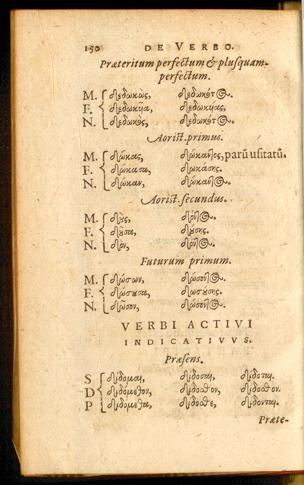 150 DE VERBO.
Præteritum perfectum & plusquam-
perfectum.
M. δεδωκὼς, δεδωκότος.
F. δεδωκῆα, δεδωκῆας.
N. δεδωκὸς, δεδωκότος.
Aorist. primus.
M. δώκας, δώκαντος, parū usitatū.
F. δώκασα, δωκάσης.
N. δῶκαν, δώκαντος.
Aorist. secundus.
M. δὸς, δόντος.
F. δοῦσα, δούσης.
N. δὸν, δόντος.
Futurum primum.
M. δώσων, δώσοντος.
F. δώσουσα, δωσούσης.
N. δῶσον, δώσοντος.
VERBI ACTIVI
INDICATIVVS.
Præsens.
S δίδομαι, δίδοσαι, δίδοται.
D διδόμεθον, δίδοσθον, δίδοσθον.
P διδόμεθα, δίδοσθε, δίδονται.
Præte-